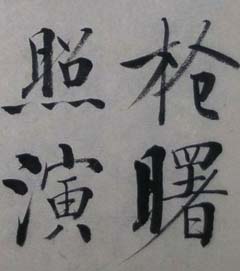 枪曙
照演